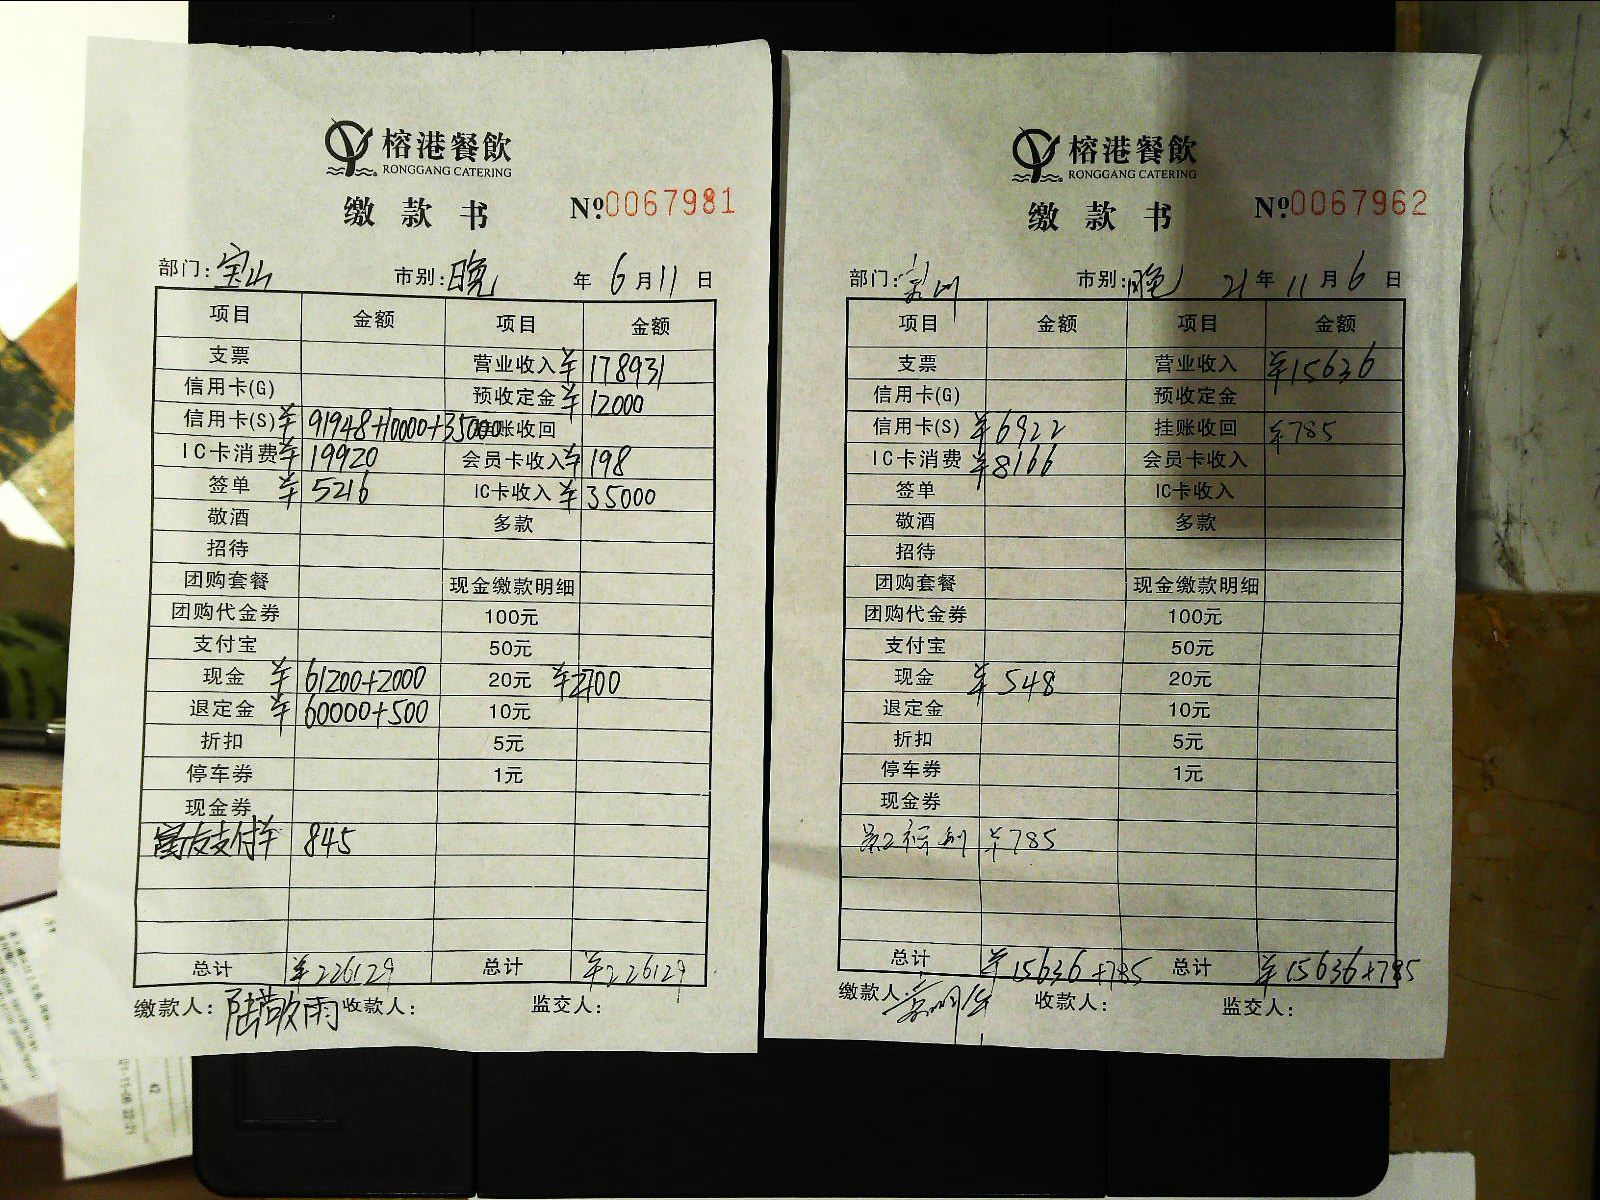 榕港餐飲
RONGGANG CATERING
缴款书 №0067981
部门:宝山 市别:晚 年 6月11日
项目 金额 项目 金额
支票 营业收入 ¥178931
信用卡(G) 预收定金 ¥12000
信用卡(S) ¥91948+10000+35000 挂账收回
IC卡消费 ¥19920 会员卡收入 ¥198
签单 ¥5216 IC卡收入 ¥35000
敬酒 多款
招待
团购套餐 现金缴款明细
团购代金券 100元
支付宝 50元
现金 ¥61200+2000 20元
退定金 ¥60000+500 10元
折扣 5元
停车券 1元
现金券
富友支付 ¥845
总计 ¥226129 总计 ¥226129
缴款人:陆敬雨 收款人: 监交人:
榕港餐飲
RONGGANG CATERING
缴款书 №0067962
部门: 市别:晚 21年11月6日
项目 金额 项目 金额
支票 营业收入 ¥15636
信用卡(G) 预收定金
信用卡(S) ¥6922 挂账收回 ¥785
IC卡消费 ¥8166 会员卡收入
签单 IC卡收入
敬酒 多款
招待
团购套餐 现金缴款明细
团购代金券 100元
支付宝 50元
现金 ¥548 20元
退定金 10元
折扣 5元
停车券 1元
现金券
¥785
总计 ¥15636+785 总计 ¥15636+785
缴款人: 收款人: 监交人: